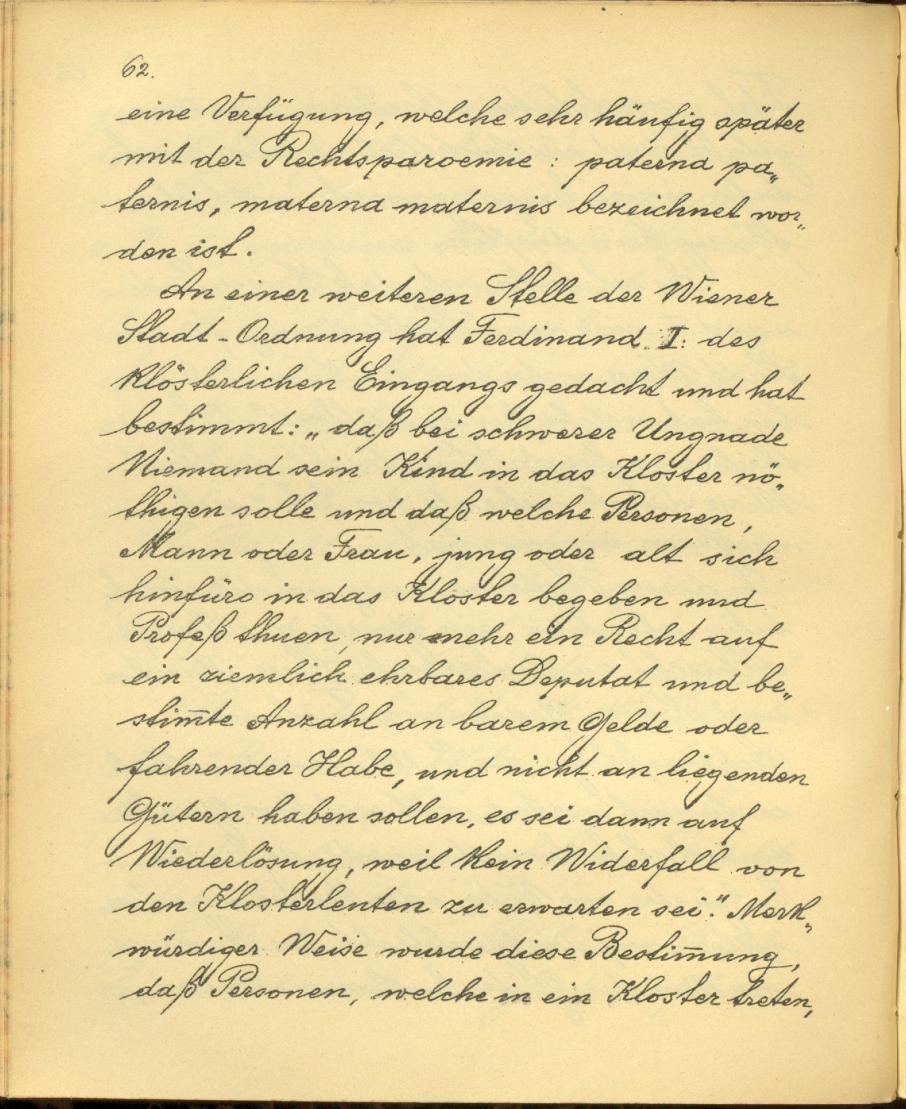 62.
eine Verfügung, welche sehr häufig später
mit der Rechtsparoemie : paterna pa„
ternis, materna maternis bezeichnet wor„
den ist.
An einer weiteren Stelle der Wiener
Stadt-Ordnung hat Ferdinand I: des
klösterlichen Eingangs gedacht und hat
bestimmt: „daß bei schwerer Ungnade
Niemand sein Kind in das Kloster nö„
thigen solle und daß welche Personen,
Mann oder Frau, jung oder alt sich
hinfüro in das Kloster begeben und
Profeß thuen, nur mehr ein Recht auf
ein ziemlich ehrbares Deputat und be„
stim̅te Anzahl an barem Gelde oder
fahrender Habe, und nicht an liegenden
Gütern haben sollen, es sei dann auf
Wiederlösung, weil kein Widerfall von
den Klosterlenten zu erwarten sei." Merk„
würdiger Weise wurde diese Bestim̅ung,
daß Personen, welche in ein Kloster treten,